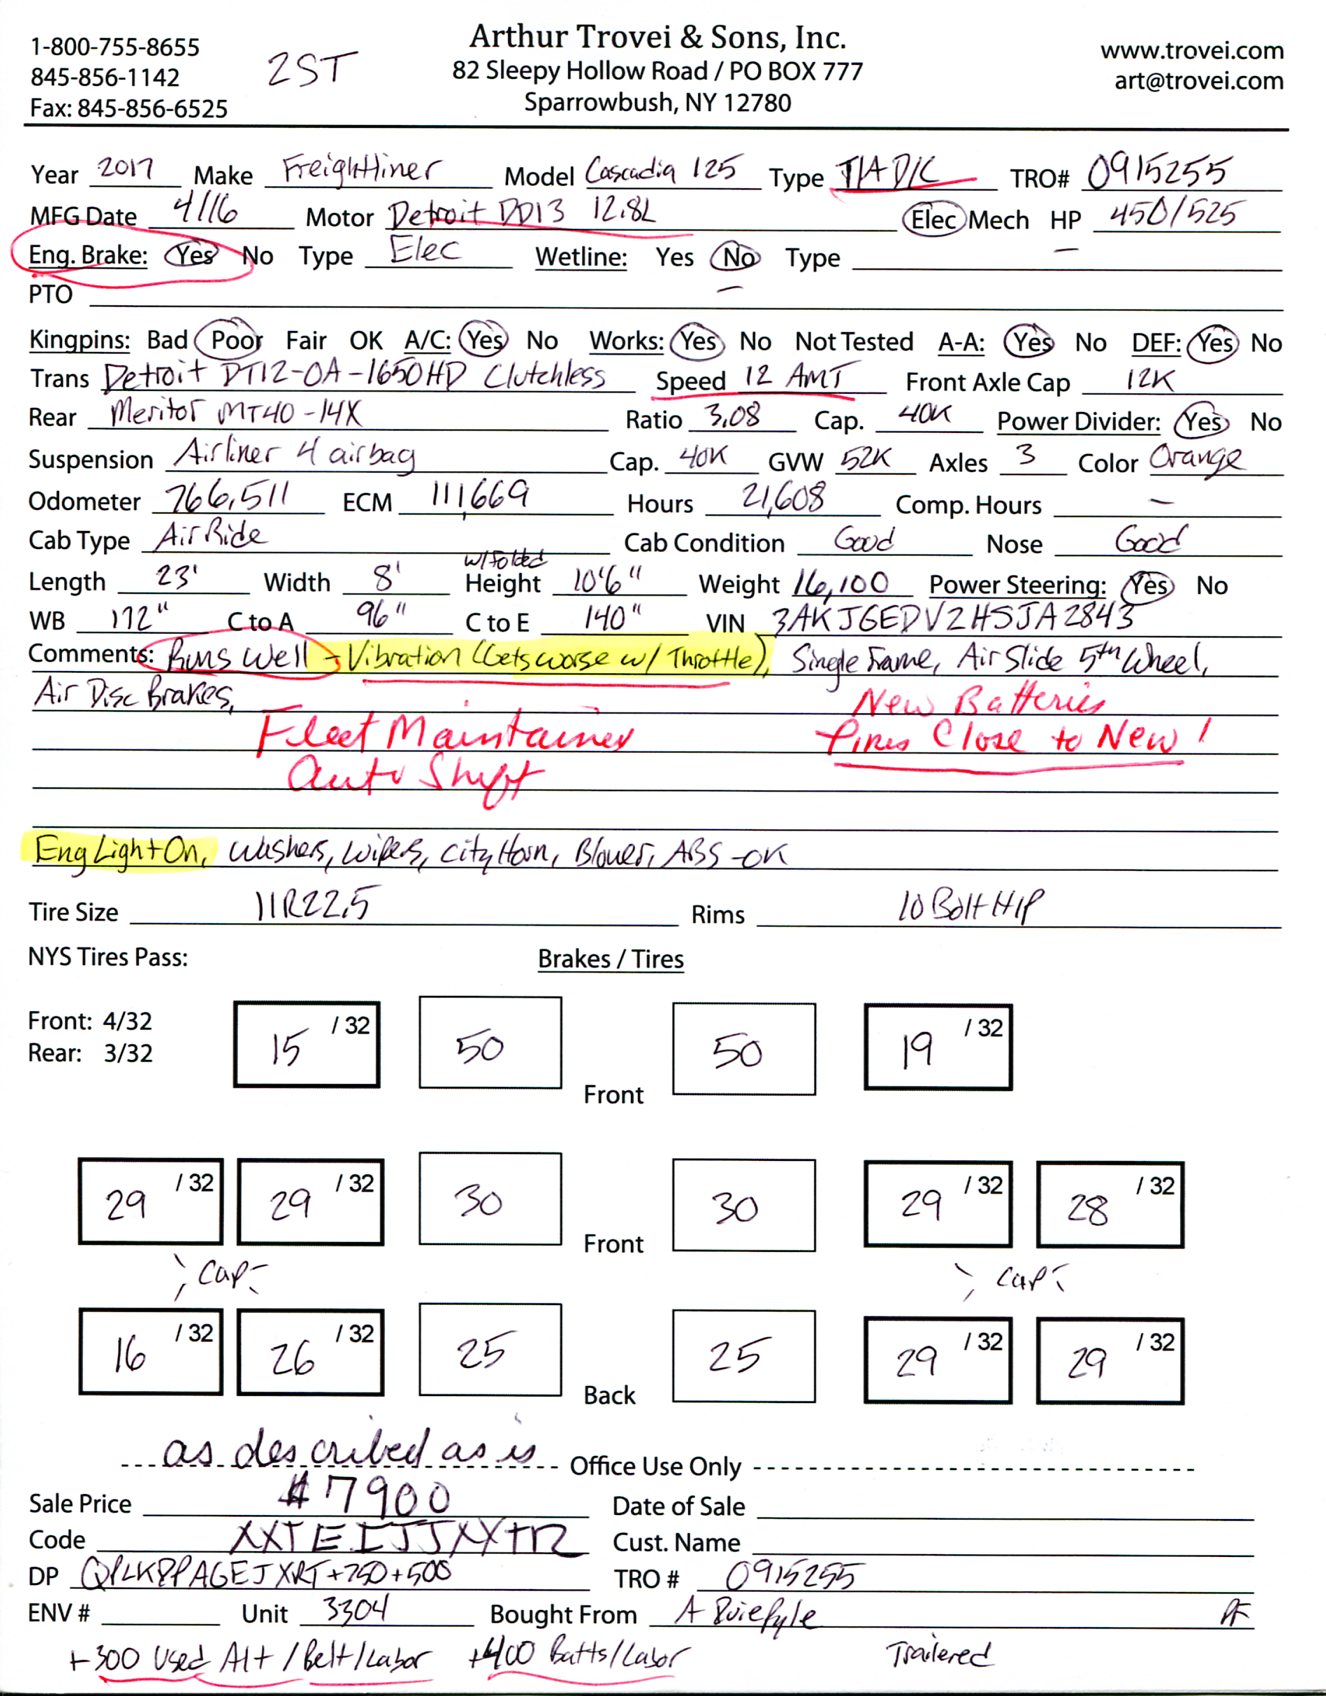 Arthur Trovei & Sons, Inc.
1-800-755-8655
845-856-1142
Fax: 845-856-6525
2ST
82 Sleepy Hollow Road / PO BOX 777
Sparrowbush, NY 12780
www.trovei.com
art@trovei.com
Year 2017 Make Freightliner Model Cascadia 125 Type T/A D/C TRO# 0915255
MFG Date 4/16 Motor Detroit DD13 12.8L Elec Mech HP 450/525
Eng. Brake: Yes No Type Elec Wetline: Yes No Type —
PTO —
Kingpins: Bad Poor Fair OK A/C: Yes No Works: Yes No Not Tested A-A: Yes No DEF: Yes No
Trans Detroit DT12-OA-1650HD Clutchless Speed 12 AMT Front Axle Cap 12K
Rear Meritor MT40-14X Ratio 3.08 Cap. 40K Power Divider: Yes No
Suspension Airliner 4 airbag Cap. 40K GVW 52K Axles 3 Color Orange
Odometer 766,511 ECM 111,669 Hours 21,608 Comp. Hours —
Cab Type Air Ride Cab Condition Good Nose Good
Length 23' Width 8' w/folded Height 10'6" Weight 16,100 Power Steering: Yes No
WB 172" C to A 96" C to E 140" VIN 3AKJGEDV2HSJA2843
Comments: Runs Well - Vibration (Gets worse w/ Throttle), Single Frame, Air Slide 5th Wheel,
Air Disc Brakes,
New Batteries
Fleet Maintained
Tires Close to New!
Auto Shift
Eng Light On, Washers, Wipers, City Horn, Blower, ABS - OK
Tire Size 11R22.5 Rims 10 Bolt H/P
NYS Tires Pass: Brakes / Tires
Front: 4/32
Rear: 3/32
15 /32 50 Front 50 19 /32
29 /32 29 /32 30 Front 30 29 /32 28 /32
Cap Cap
16 /32 26 /32 25 Back 25 29 /32 29 /32
as described as is
Office Use Only
Sale Price $7900 Date of Sale
Code XXTEIJJXXTR Cust. Name
DP QPLKPPAGEJXRT+750+500 TRO # 0915255
ENV # Unit 3304 Bought From A Duie Pyle
+300 Used Alt / Belt / Labor +400 Batts/Labor Trailered